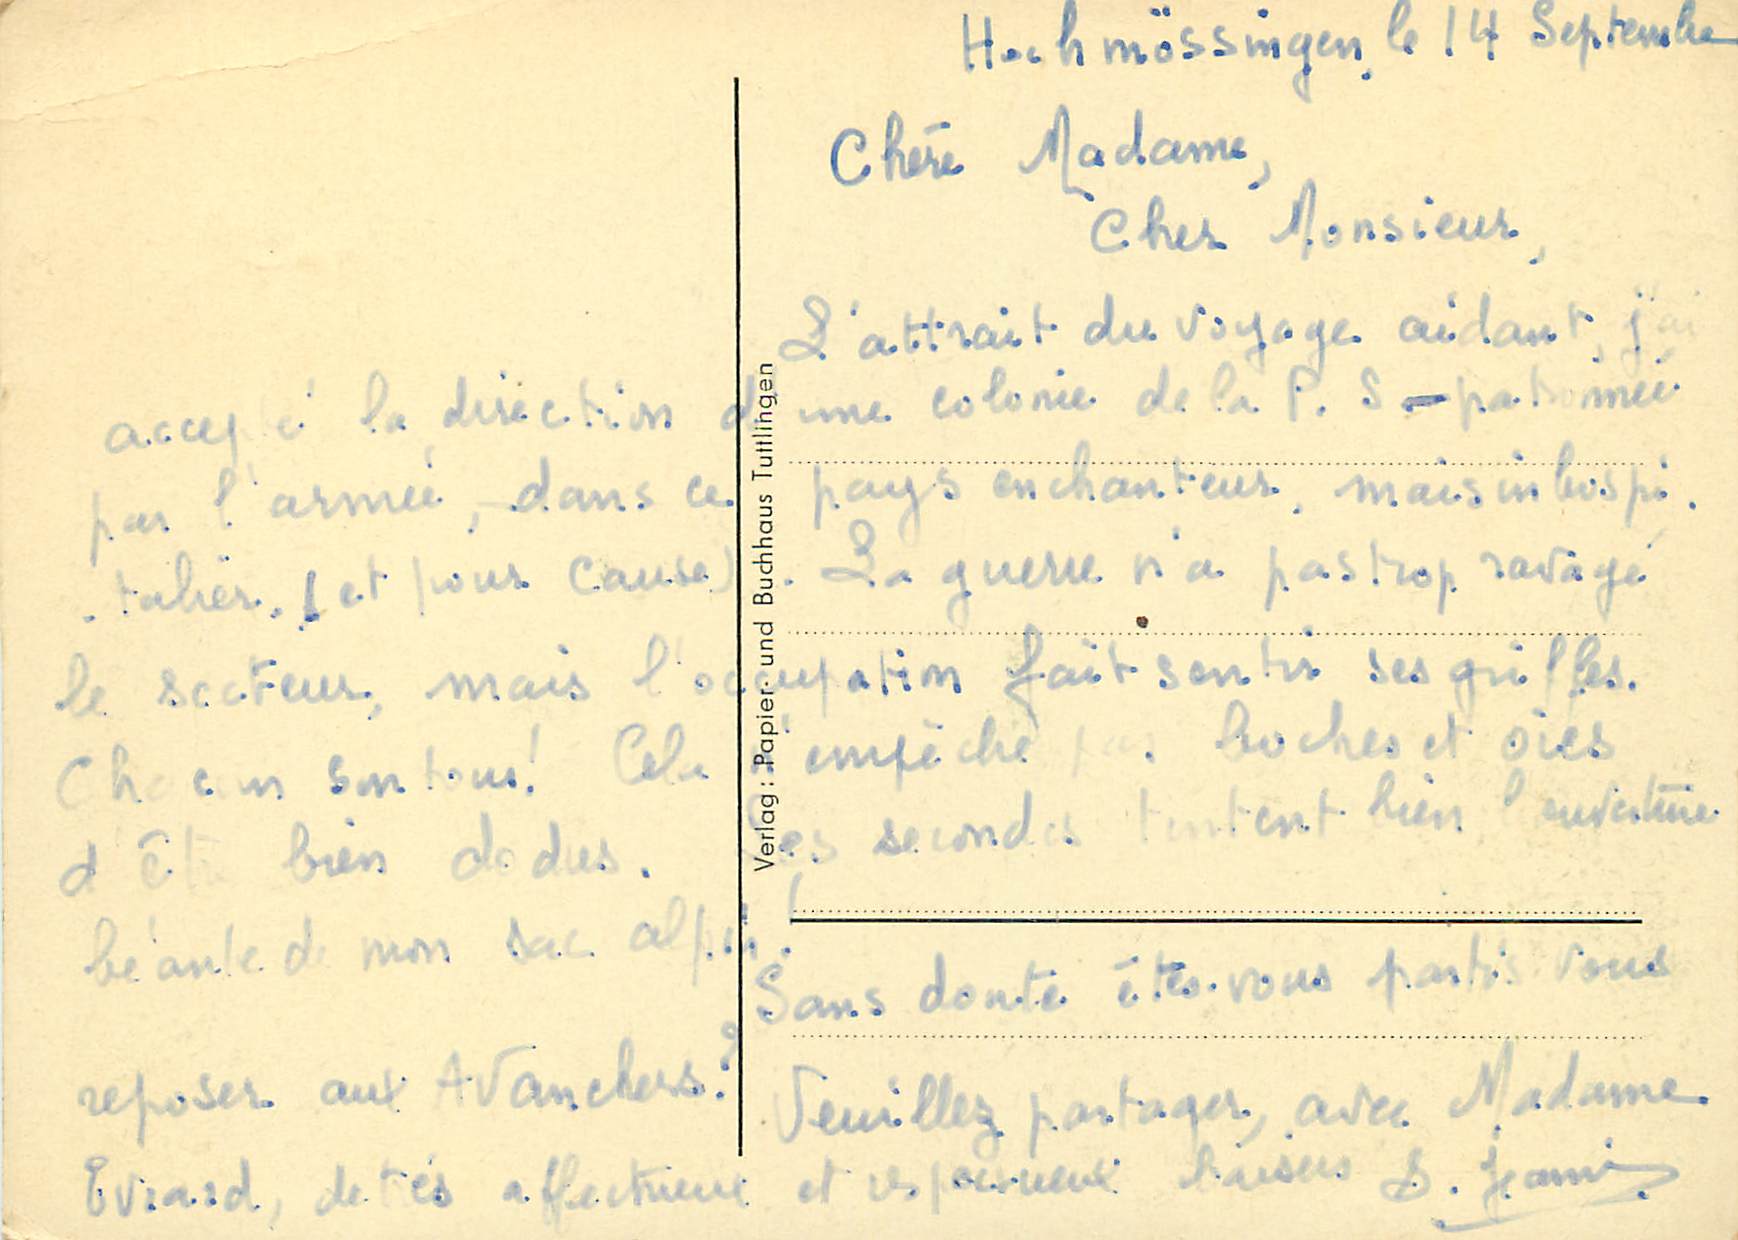 Hochmössingen, le 14 Septembre
Chère Madame,
Cher Monsieur,
L'attrait du voyage aidant, j'ai
accepté la direction d'une colonie de la P. S - patronnée
par l'armée, - dans ce pays enchanteur, mais inhospi.
. talier. (et pour cause). La guerre n'a pas trop ravagé
le secteur, mais l'occupation fait sentir ses griffes.
Chacun son tour! Cela n'empêche pas boches et oies
d'être bien dodus. Les secondes tentent bien l'ouverture
béante de mon sac alpin.
Sans doute êtes-vous partis vous
reposer aux Avanchers? Veuillez partager, avec Madame
Evrard, de très affectueux et respectueux baisers
Verlag: Papier- und Buchhaus Tuttlingen